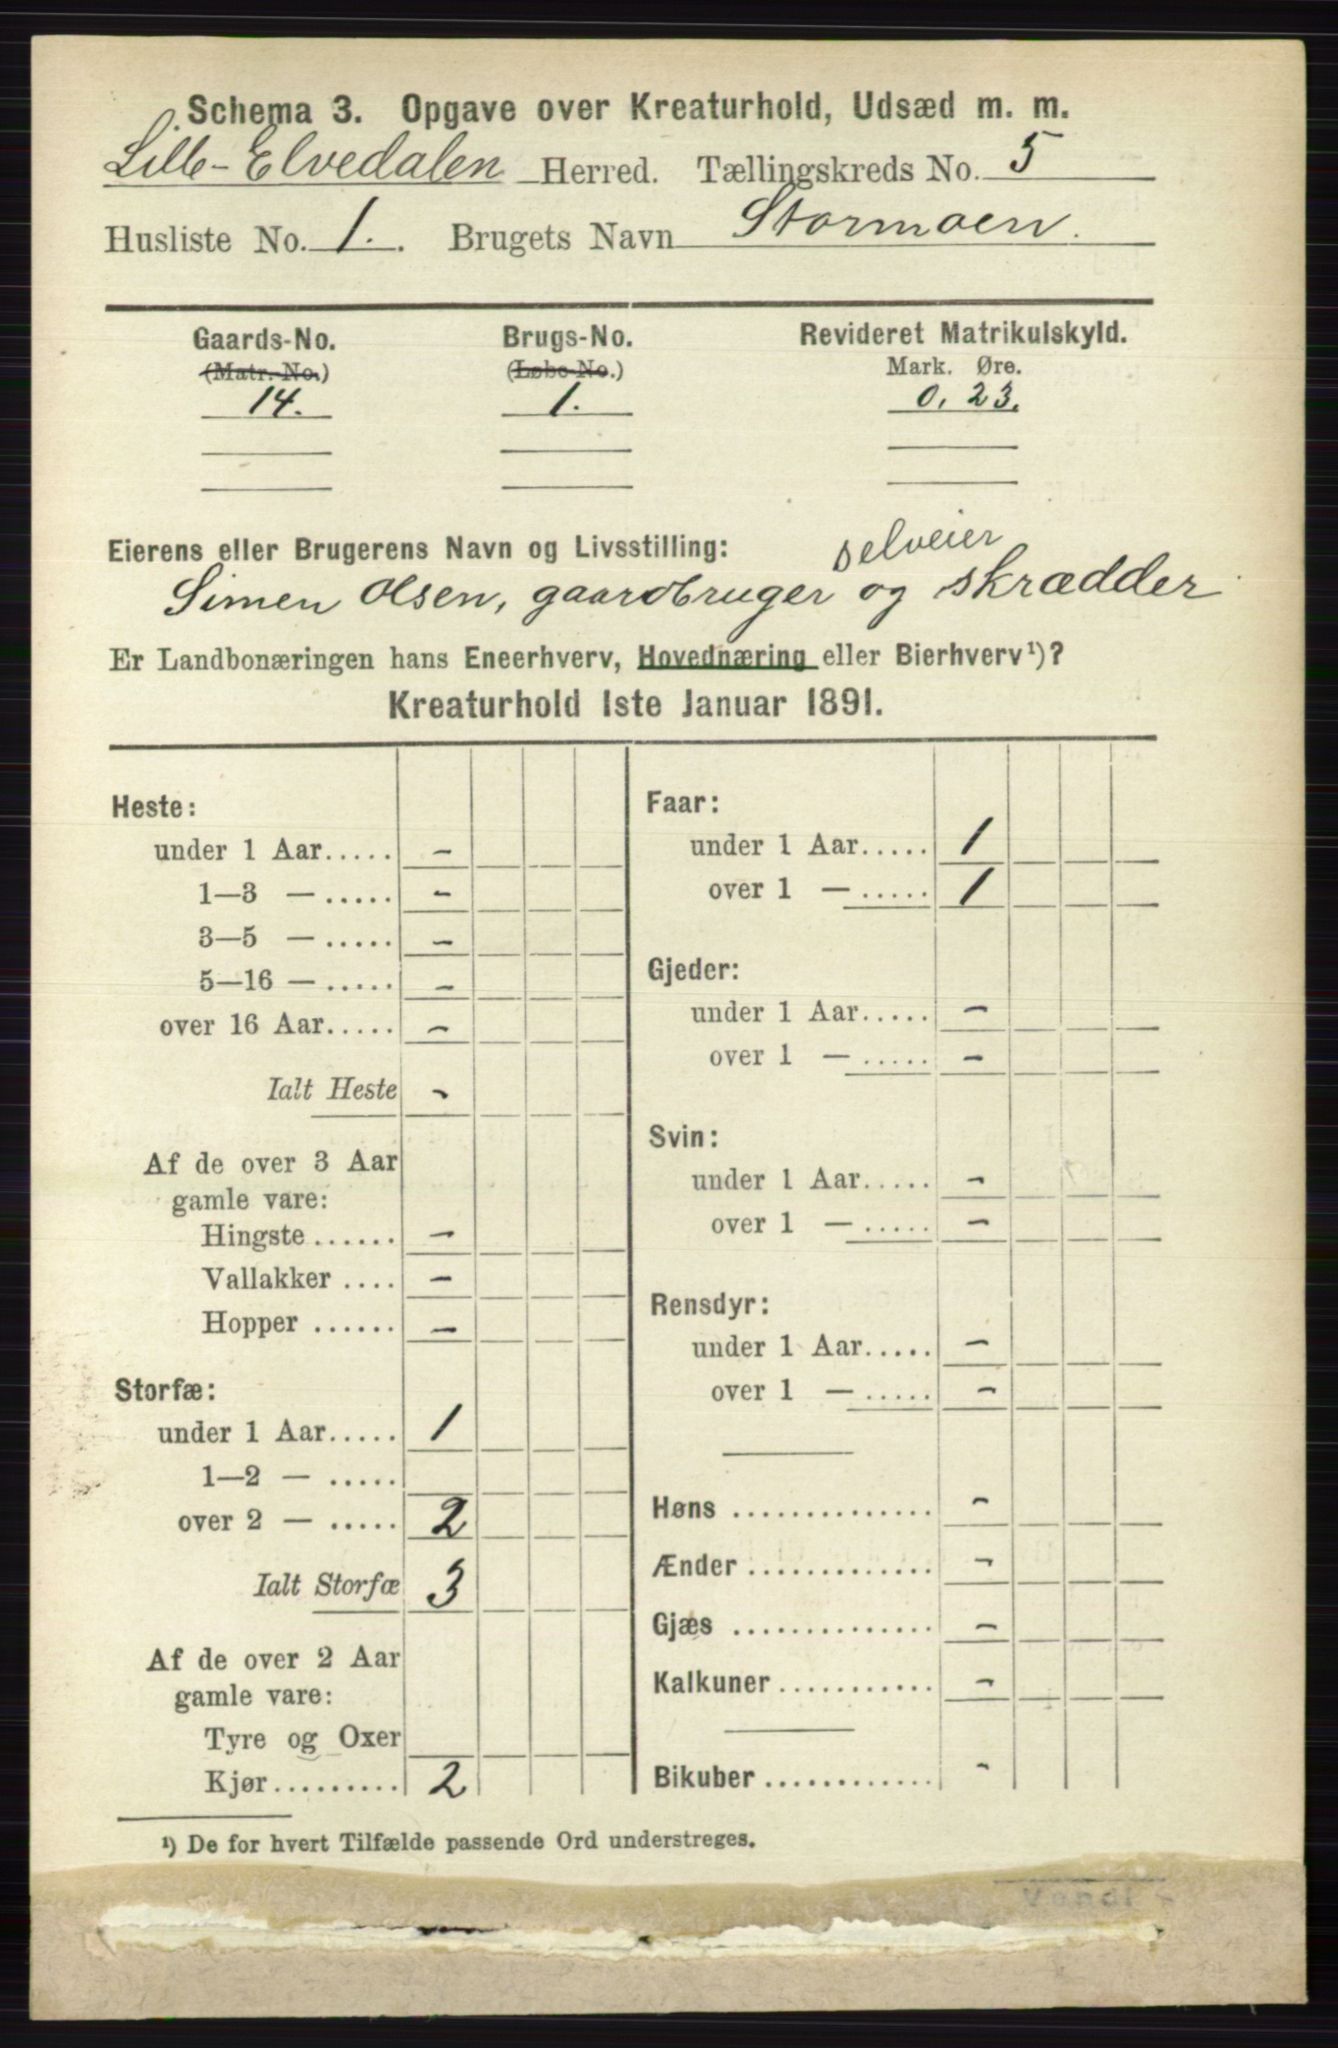 Schema 3. Opgave over Kreaturhold, Udsæd m. m.
Lille-Elvedalen Herred. Tællingskreds No. 5
Husliste No. 1. Brugets Navn Stormoen.
Gaards-No. Brugs-No. Revideret Matrikulskyld.
(Matr.-No.) (Løbe-No.) Mark. Øre.
14. 1. 0. 23.
Eierens eller Brugerens Navn og Livsstilling: selveier
Simen Olsen, gaardbruger og skrædder
Er Landbonæringen hans Eneerhverv, Hovednæring eller Bierhverv¹)?
Kreaturhold 1ste Januar 1891.
Heste:
under 1 Aar..... -
1—3 — ..... -
3—5 — ..... -
5—16 — ..... -
over 16 Aar..... -
Ialt Heste -
Af de over 3 Aar
gamle vare:
Hingste ...... -
Vallakker .... -
Hopper ...... -
Storfæ:
under 1 Aar..... 1
1—2 — .....
over 2 — ..... 2
Ialt Storfæ 3
Af de over 2 Aar
gamle vare:
Tyre og Oxer
Kjør.......... 2
Faar:
under 1 Aar..... 1
over 1 — ..... 1
Gjeder:
under 1 Aar..... -
over 1 — ..... -
Svin:
under 1 Aar..... -
over 1 — ..... -
Rensdyr:
under 1 Aar..... -
over 1 — ..... -
Høns .............. -
Ænder ............. -
Gjæs .............. -
Kalkuner ........... -
Bikuber ............ -
¹) De for hvert Tilfælde passende Ord understreges.
Vend!